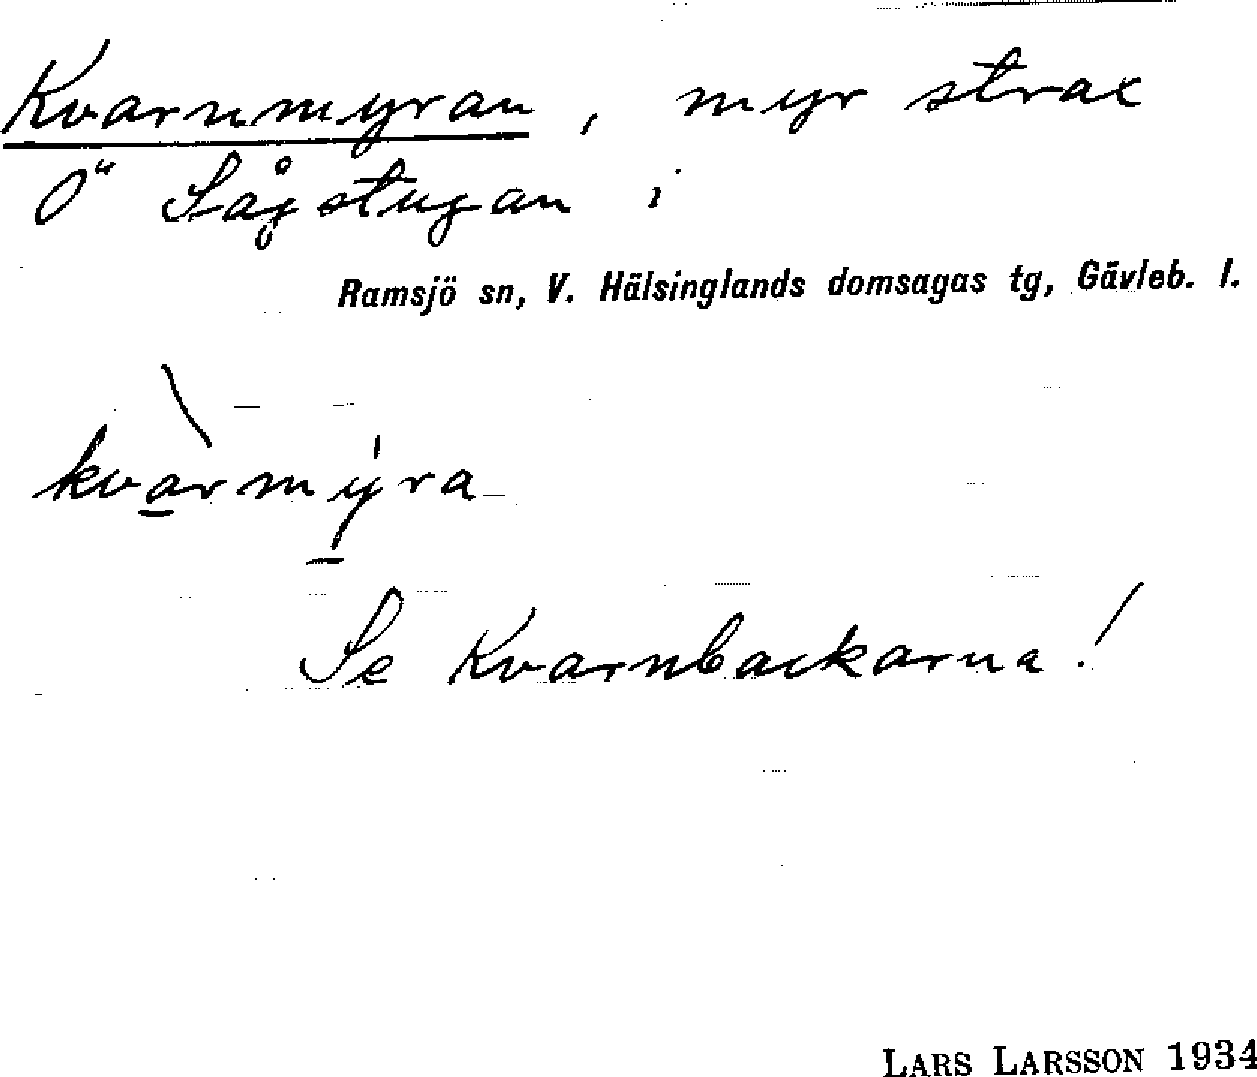 Kvarnmyran, myr strax
Ö Sågstugan i
Ramsjö sn, V. Hälsinglands domsagas tg, Gävleb. l.
kvàrmýra
Se Kvarnbackarna!
LARS LARSSON 1934